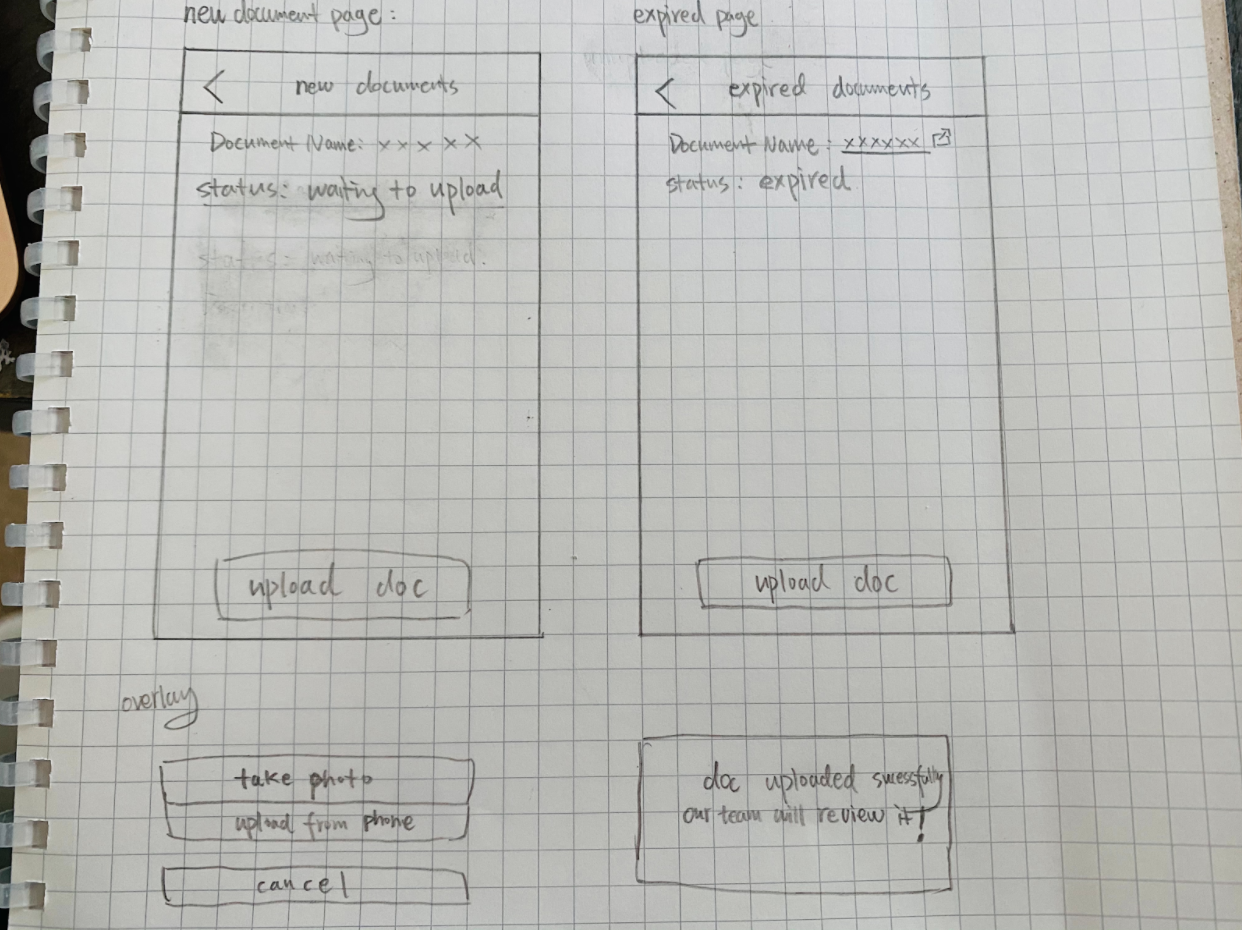 new document page:
expired page
< new documents
Document Name: x x x x x
status: waiting to upload
status: waiting to upload.
upload doc
< expired documents
Document Name: xxxxxx
status: expired
upload doc
overlay
take photo
upload from phone
cancel
doc uploaded sucessfully
our team will review it!